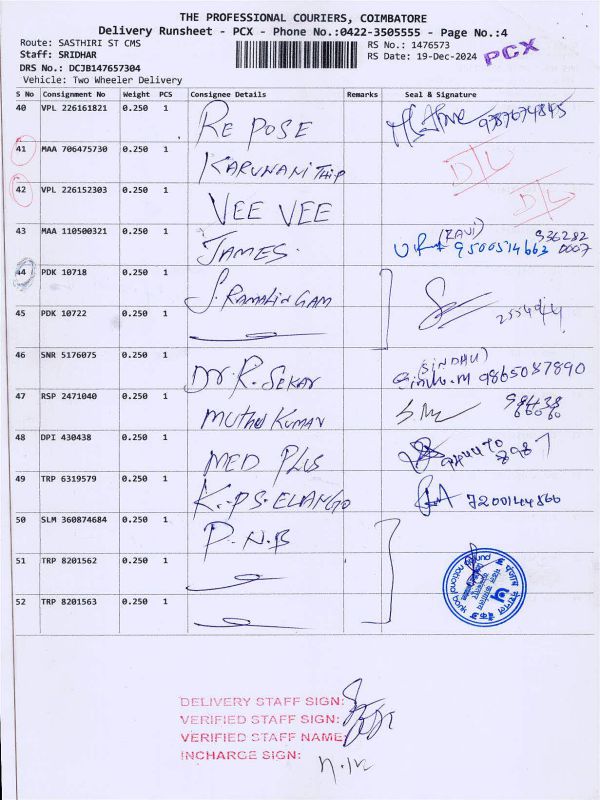 THE PROFESSIONAL COURIERS, COIMBATORE
Delivery Runsheet - PCX - Phone No.:0422-3505555 - Page No.:4
Route: SASTHIRI ST CMS
RS No.: 1476573
Staff: SRIDHAR
RS Date: 19-Dec-2024
PCX
DRS No.: DCJB147657304
Vehicle: Two Wheeler Delivery
S No Consignment No Weight PCS Consignee Details Remarks Seal & Signature
40 VPL 226161821 0.250 1 RE POSE
41 MAA 706475730 0.250 1 KARUNANiTHiP D/L
42 VPL 226152303 0.250 1 VEE VEE D/L
43 MAA 110500321 0.250 1 JAMES. (RAVI) 9500574663 936282 0007
44 PDK 10718 0.250 1 S. RAMALiNGAM
45 PDK 10722 0.250 1
46 SNR 5176075 0.250 1 DR. R. SEKAR (SiNDHU) Sindhu.M 9865087890
47 RSP 2471040 0.250 1 MUTHU KUMAR
48 DPI 430438 0.250 1 MED PLUS
49 TRP 6319579 0.250 1 K.PS.ELANGO 7200144866
50 SLM 360874684 0.250 1 P.N.B
51 TRP 8201562 0.250 1
52 TRP 8201563 0.250 1
punjab national bank
DELIVERY STAFF SIGN:
VERIFIED STAFF SIGN:
VERIFIED STAFF NAME:
INCHARGE SIGN: